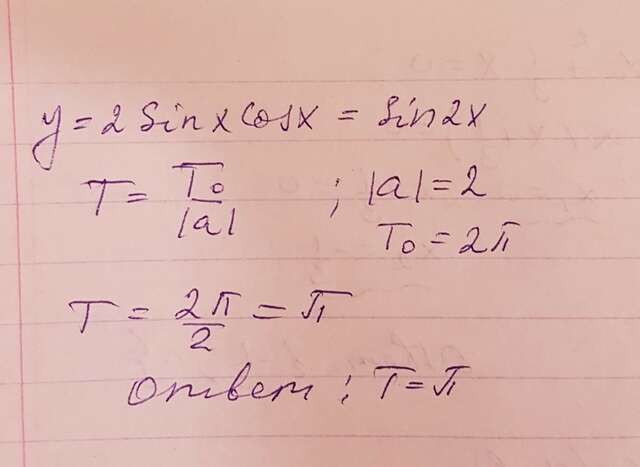 y = 2 sin x cos x = sin 2x
T = T₀/|a| ; |a| = 2
T₀ = 2π
T = 2π/2 = π
Ответ : T = π